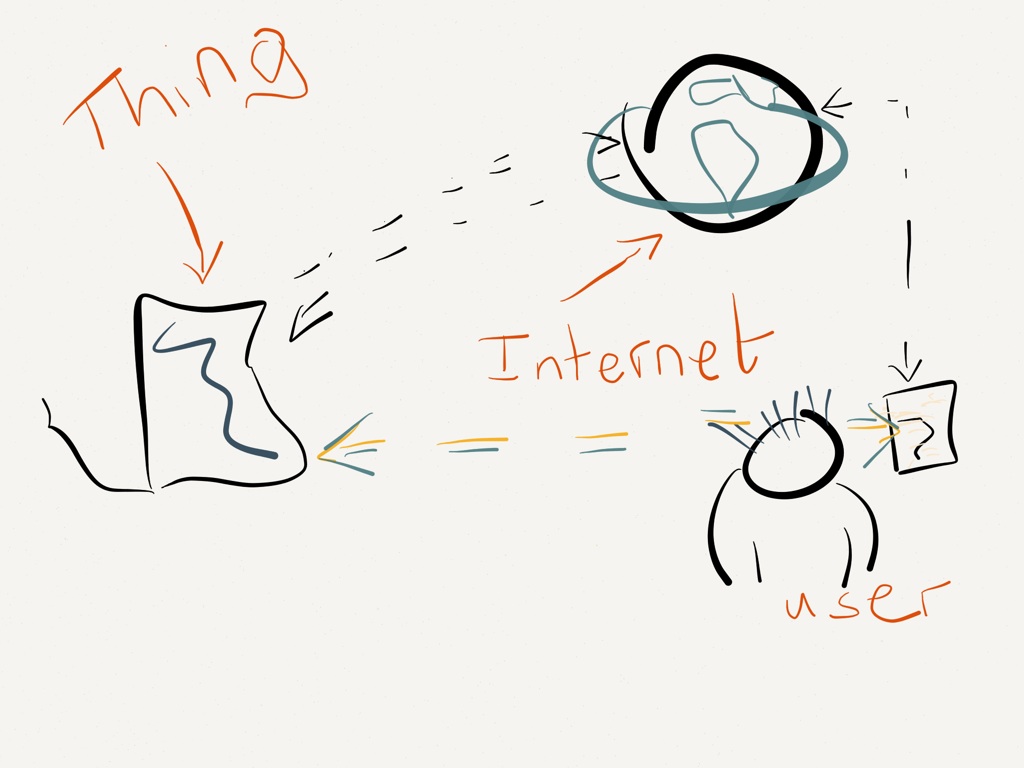 Thing
Internet
user